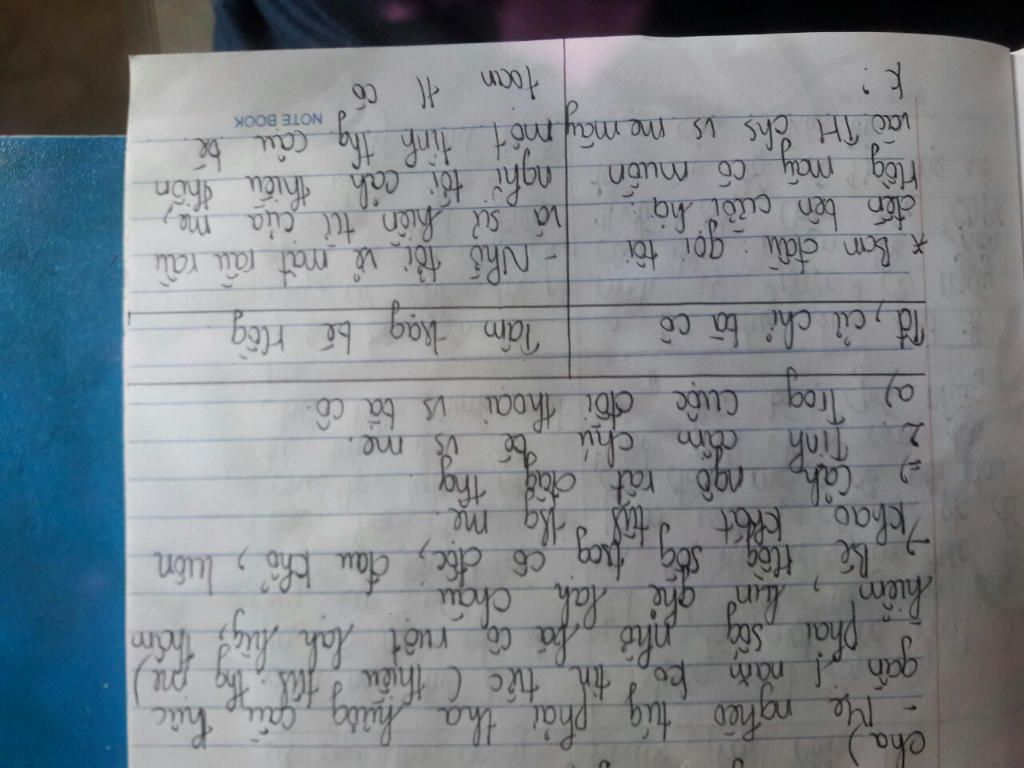 cha)
- Mẹ nghèo túg phải tha hươg cầu thực
gần 1 năm ko tin tức (thiếu tìh thg mẹ)
phải sốg nhờ bà cô ruột lạh lùg, thâm
hiểm, lún ghẻ lạh cháu
→ Bé Hồg sốg trog cô độc, đau khổ, luôn
khao khát tìh thg mẹ.
=> Cảh ngộ rất đág thg
2. Tình cảm chú bé vs mẹ.
a) Trog cuộc đối thoại vs bà cô.
Tđ, cử chỉ bà cô
* Ban đầu: gọi tôi
đến bên cười hỏi:
Hồg mày có muốn
vào TH chs vs mẹ mày
k?
Tâm trạg bé Hồg
- Nhớ tới vẻ mặt rầu rầu
và sự hiền từ của mẹ,
nghĩ tới cảh thiếu thốn
một tình thg cậu bé
toan tl có
NOTE BOOK